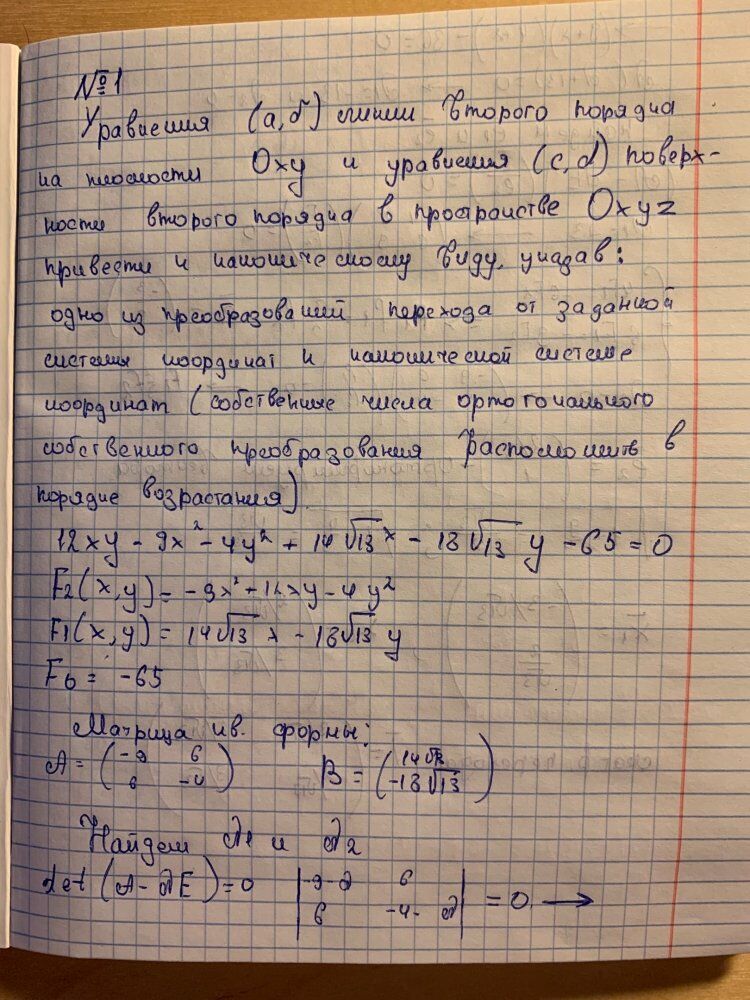 №1
Уравнения (а,б) линии второго порядка
на плоскости Oxy и уравнения (c,d) поверх-
ности второго порядка в пространстве Oxyz
привести к каноническому виду, указав:
одно из преобразований перехода от заданной
системы координат к канонической системе
координат (собственные числа ортогонального
собственного преобразования расположить в
порядке возрастания)
12xy - 9x² - 4y² + 14√13 x - 18√13 y - 65 = 0
F2(x,y) = -9x² + 12xy - 4y²
F1(x,y) = 14√13 x - 18√13 y
F0 = -65
Матрица кв. формы:
A = (-9 6 6 -4) B = (14√13 -18√13)
Найдем λ1 и λ2
det (A - λE) = 0 |-9-λ 6 6 -4-λ| = 0 →